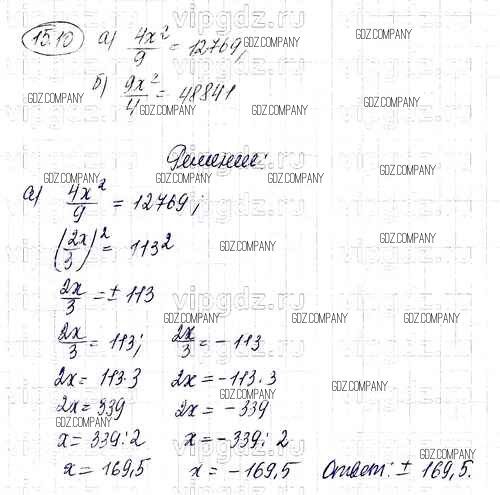 15.10 а) 4x²/9 = 12769,
б) 9x²/4 = 48841
Решение:
а) 4x²/9 = 12769;
(2x/3)² = 113²
2x/3 = ± 113
2x/3 = 113; 2x/3 = - 113
2x = 113·3 2x = -113·3
2x = 339 2x = -339
x = 339:2 x = -339:2
x = 169,5 x = -169,5 Ответ: ± 169,5.
vipgdz.ru
GDZ.COMPANY